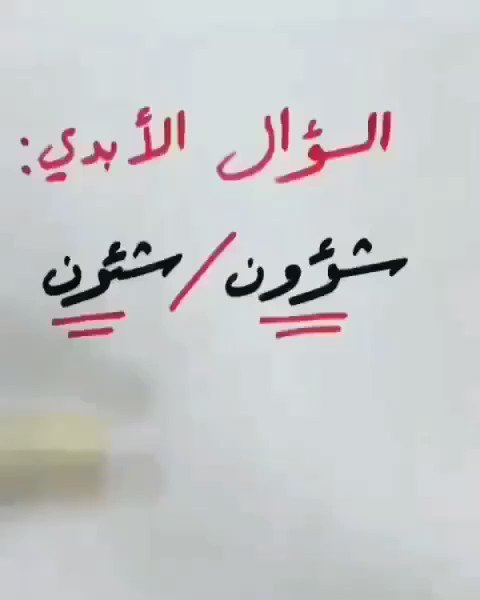 السؤال الأبدي:
شؤون / شئون